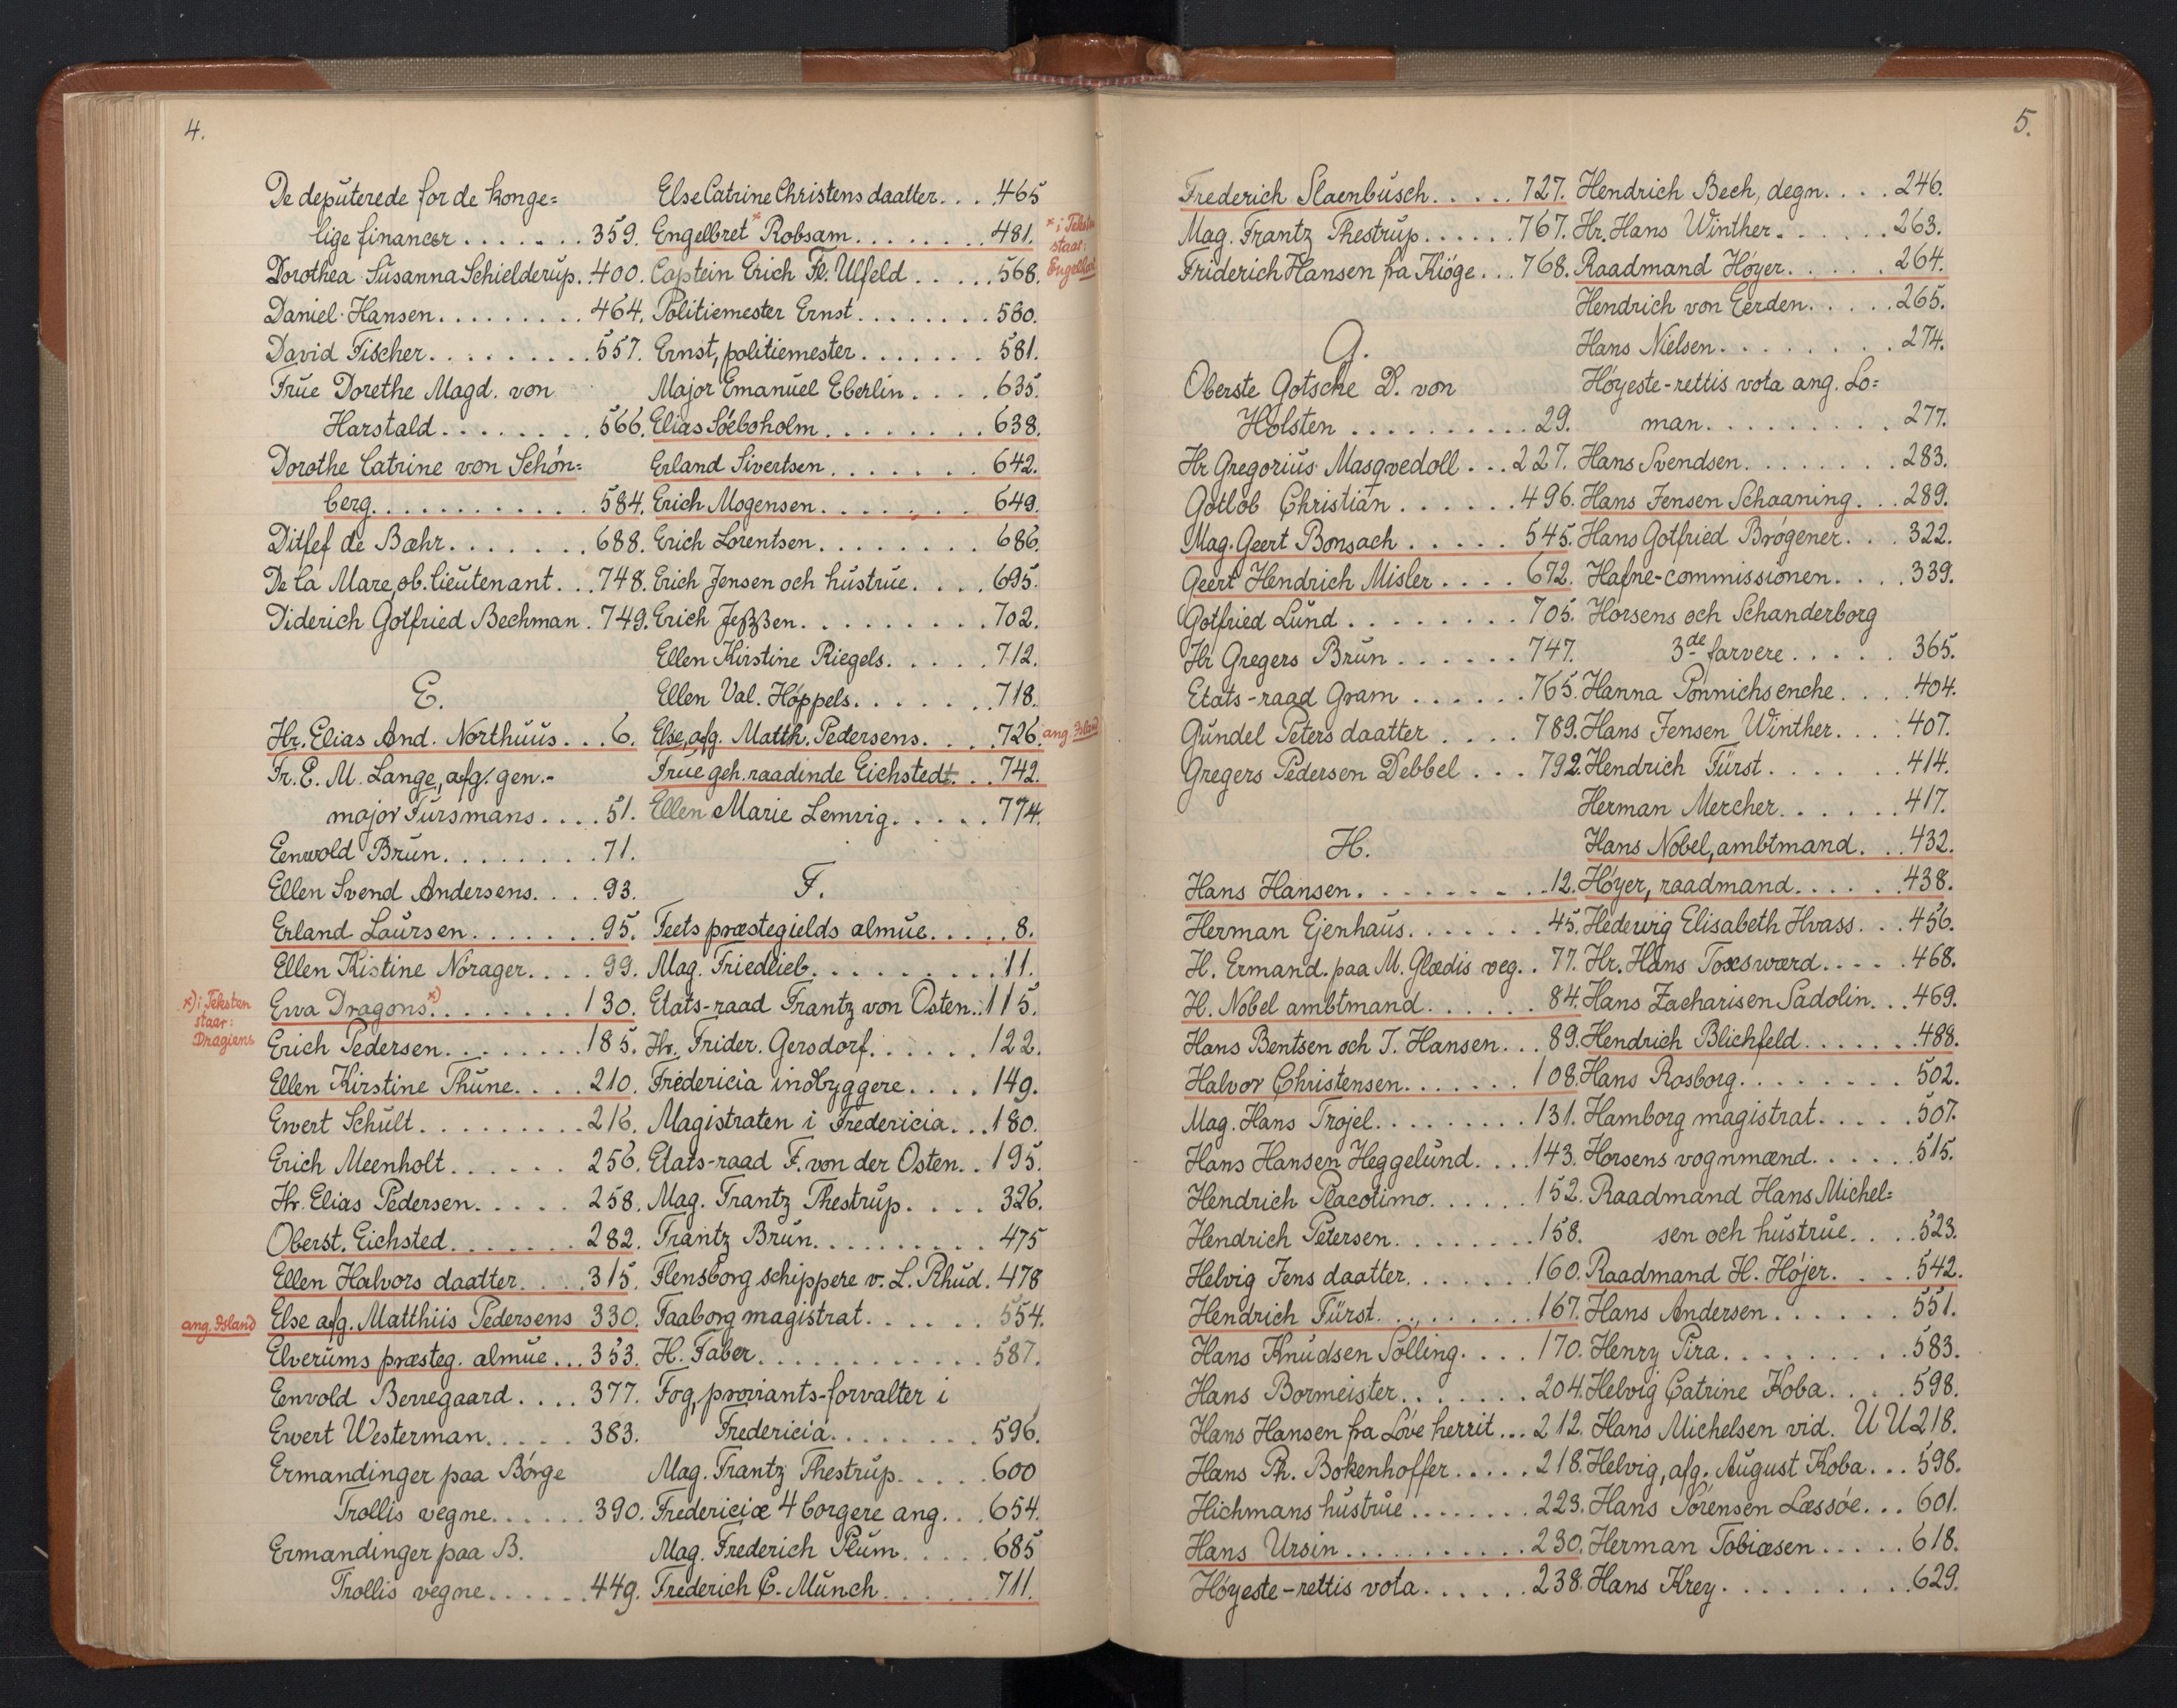 4.
De deputerede for de konge=
lige financer....... 359.
Dorothea Susanna Schielderup..400.
Daniel Hansen......... 464.
David Fischer......... 557.
Frue Dorethe Magd. von
Harstald........ 566.
Dorothe Catrine von Schön=
berg........... 584.
Ditlef de Bæhr....... 688.
De la Mare, ob. lieutenant... 748.
Diderich Gotfried Bechman. 749.
E.
Hr. Elias And. Northuus... 6.
Fr. E. M. Lange, afg. gen.-
major Fursmans.... 51.
Eenwold Brun........ 71.
Ellen Svend Andersens.... 93.
Erland Laursen....... 95.
Ellen Kistine Nørager.... 99.
*) i Teksten
staar:
Dragiens
Ewa Dragons.*)....... 130.
Erich Pedersen........ 185.
Ellen Kirstine Thune.... 210.
Ewert Schult......... 216.
Erich Meenholt...... 256.
Hr. Elias Pedersen..... 258.
Oberst. Eichsted....... 282.
Ellen Halvors daatter.... 315.
ang. Island
Else afg. Matthiis Pedersens 330.
Elverums præsteg. almue... 353.
Eenvold Berregaard.... 377.
Ewert Westerman..... 383.
Ermandinger paa Børge
Trollis vegne...... 390.
Ermandinger paa B.
Trollis vegne...... 449.
Else Catrine Christens daatter... 465
Engelbret* Robsam........ 481.
* i Teksten
staar:
Captein Erich Fr. Ulfeld..... 568.
Politiemester Ernst........ 580.
Ernst, politiemester....... 581.
Major Emanuel Eberlin.... 635.
Elias Söeboholm........ 638.
Erland Sivertsen....... 642.
Erich Mogensen........ 649.
Erich Lorentsen........ 686.
Erich Jensen och hustrue.... 695.
Erich Jeßßen......... 702.
Ellen Kirstine Riegels..... 712.
Ellen Val. Høppels....... 718.
Else, afg. Matth. Pedersens.... 726.
ang. Island
Frue geh. raadinde Eichstedt... 742.
Ellen Marie Lemvig..... 774.
F.
Feets præstegields almue..... 8.
Mag. Friedlieb......... 11.
Etats-raad Frantz von Osten..115.
Hr. Frider. Gersdorf...... 122.
Fredericia indbyggere.... 149.
Magistraten i Fredericia... 180.
Etats-raad F. von der Osten.. 195.
Mag. Frantz Thestrup.... 326.
Frantz Brun.......... 475
Flensborg schippere v. L. Rhud. 478
Faaborg magistrat...... 554.
H. Faber............ 587.
Fog, proviants-forvalter i
Fredericia........ 596.
Mag. Frantz Thestrup..... 600
Fredericiæ 4 borgere ang... 654.
Mag. Frederich Plum..... 685
Frederich C. Münch...... 711.
5.
Frederich Staenbusch..... 727.
Mag. Frantz Thestrup...... 767.
Friderich Hansen fra Kiöge... 768.
G.
Oberste Gotsche D. von
Holsten.......... 29.
Hr Gregorius Masqvedoll... 227.
Gotlob Christian...... 496.
Mag. Geert Bonsach..... 545.
Geert Hendrich Misler.... 672.
Gotfried Lund........ 705.
Hr Gregers Brun...... 747.
Etats-raad Gram...... 765.
Gundel Peters daatter.... 789.
Gregers Pedersen Debbel... 792.
H.
Hans Hansen......... 12.
Herman Ejenhaus....... 45.
H. Ermand. paa M. Glædis veg.. 77.
H. Nobel ambtmand...... 84.
Hans Bentsen och J. Hansen... 89.
Halvor Christensen...... 108.
Mag. Hans Trojel......... 131.
Hans Hansen Heggelund.... 143.
Hendrich Placotimo...... 152.
Hendrich Petersen........ 158.
Helvig Jens daatter....... 160.
Hendrich Fürst......... 167.
Hans Knudsen Solling.... 170.
Hans Bormeister....... 204.
Hans Hansen fra Löve herrit... 212.
Hans Ph. Bokenhoffer..... 218.
Hichmans hustrue....... 223.
Hans Ursin........... 230.
Høyeste-rettis vota...... 238.
Hendrich Bech, degn.... 246.
Hr. Hans Winther....... 263.
Raadmand Høyer..... 264.
Hendrich von Eerden..... 265.
Hans Nielsen........ 274.
Høyeste-rettis vota ang. Lo=
man......... 277.
Hans Svendsen....... 283.
Hans Jensen Schaaning... 289.
Hans Gotfried Brøgener... 322.
Hafne-commissionen.... 339.
Horsens och Schanderborg
3de farvere..... 365.
Hanna Ponnichsenche.... 404.
Hans Jensen Winther.... 407.
Hendrich Fürst...... 414.
Herman Mercher...... 417.
Hans Nobel, ambtmand... 432.
Høyer, raadmand..... 438.
Hedewig Elisabeth Hvass... 456.
Hr. Hans Toxsværd..... 468.
Hans Zacharisen Sadolin... 469.
Hendrich Blichfeld...... 488.
Hans Rosborg........ 502.
Hamborg magistrat..... 507.
Horsens vognmænd..... 515.
Raadmand Hans Michel=
sen och hustrue.... 523.
Raadmand H. Höjer.... 542.
Hans Andersen...... 551.
Henry Pira......... 583.
Helvig Catrine Koba.... 598.
Hans Michelsen vid. U U 218.
Helvig, afg. August Koba... 598.
Hans Sörensen Læssöe... 601.
Herman Tobiæsen..... 618.
Hans Krey......... 629.